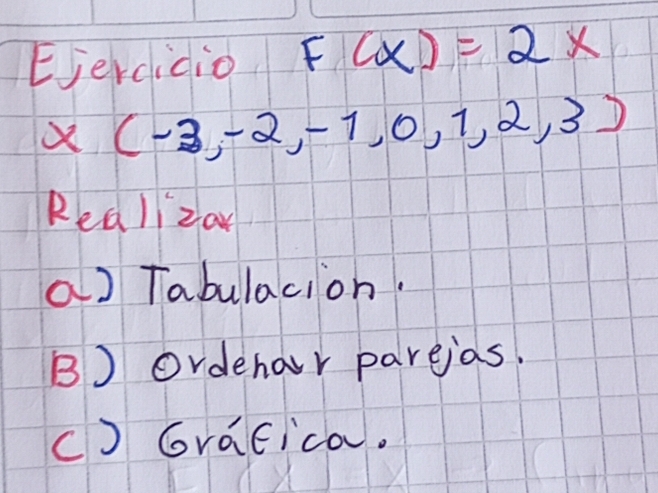 Ejercicio F (x) = 2 x
x (-3,-2,-1,0,1,2,3)
Realizar
a) Tabulacion.
B) Ordenar parejas.
C) Gráfica.